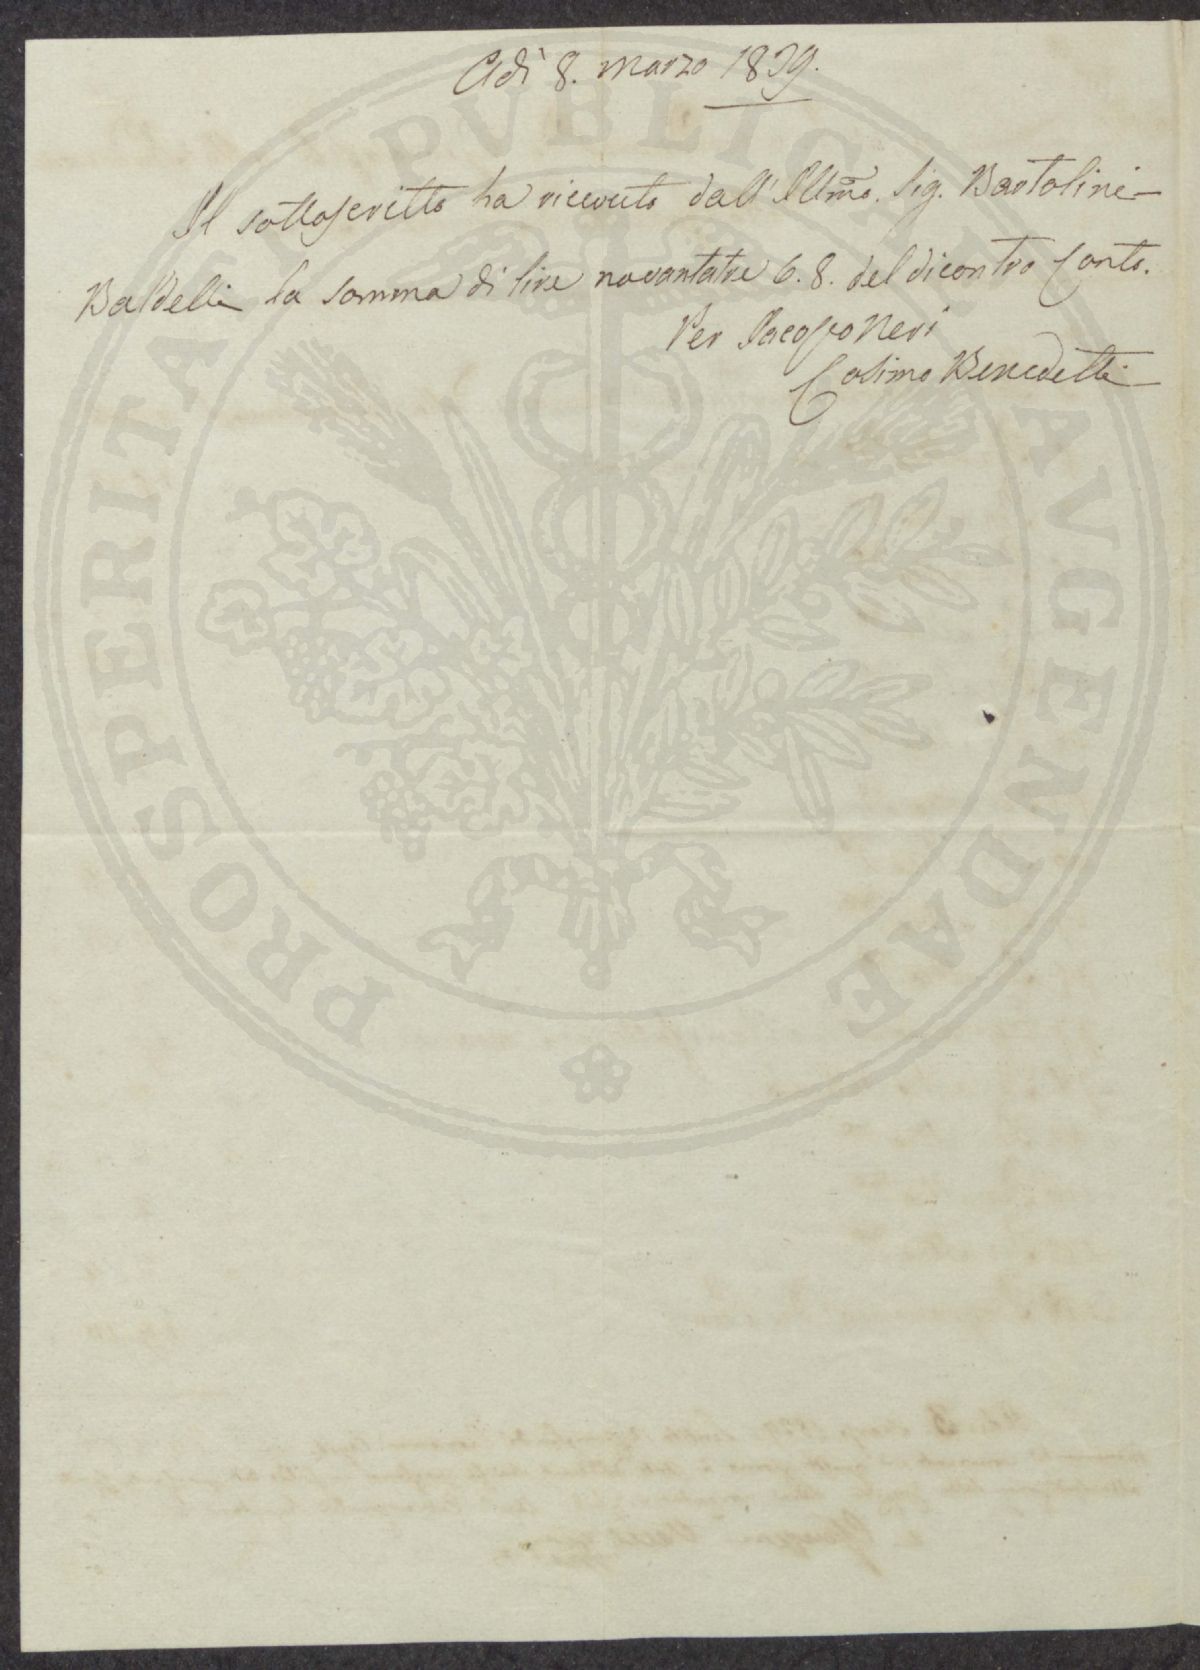 Adì 8. marzo 1839.
Il sottoscritto ha ricevuto dall' Illmo. Sig. Bartolini
Baldelli la somma di lire novantatre 6. 8. del dicontro Conto.
Per Jacopo Neri
Cosimo Benedetti
PROSPERITATI PVBLICAE AVGENDAE